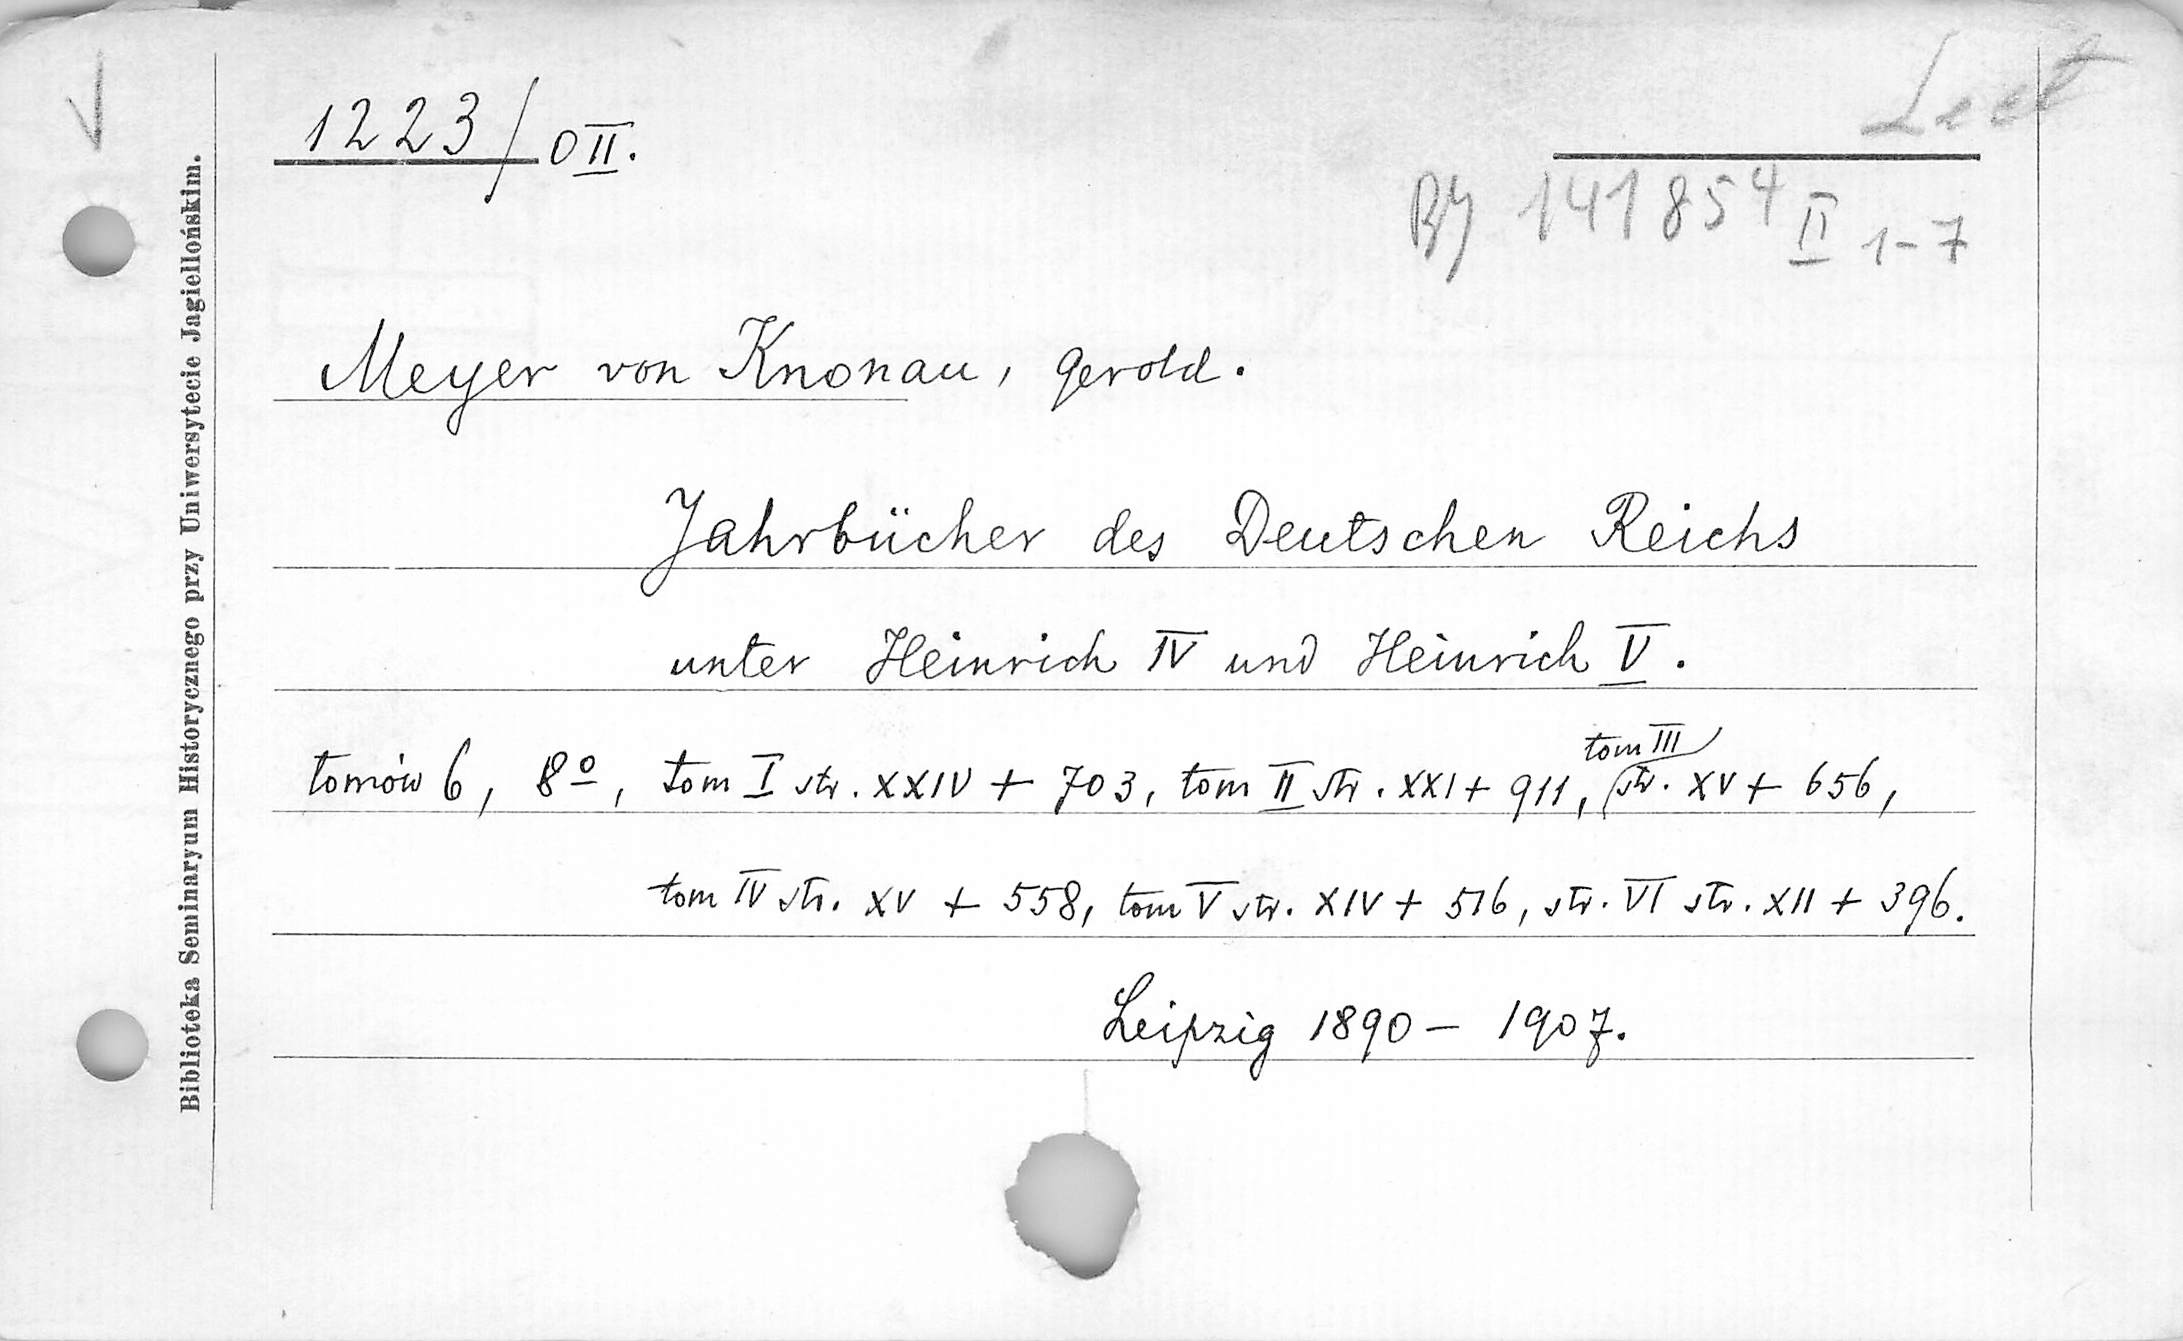 1223/OII.
Lect
BJ 141854 II 1-7
Meyer von Knonau, Gerold.
Jahrbücher des Deutschen Reichs
unter Heinrich IV und Heinrich V.
tom III
tomów 6, 8º, tom I str. XXIV + 703, tom II str. XXI + 911, str. XV + 656,
tom IV str. XV + 558, tom V str. XIV + 516, str. VI str. XII + 396.
Leipzig 1890 – 1907.
Biblioteka Seminaryum Historycznego przy Uniwersytecie Jagiellońskim.